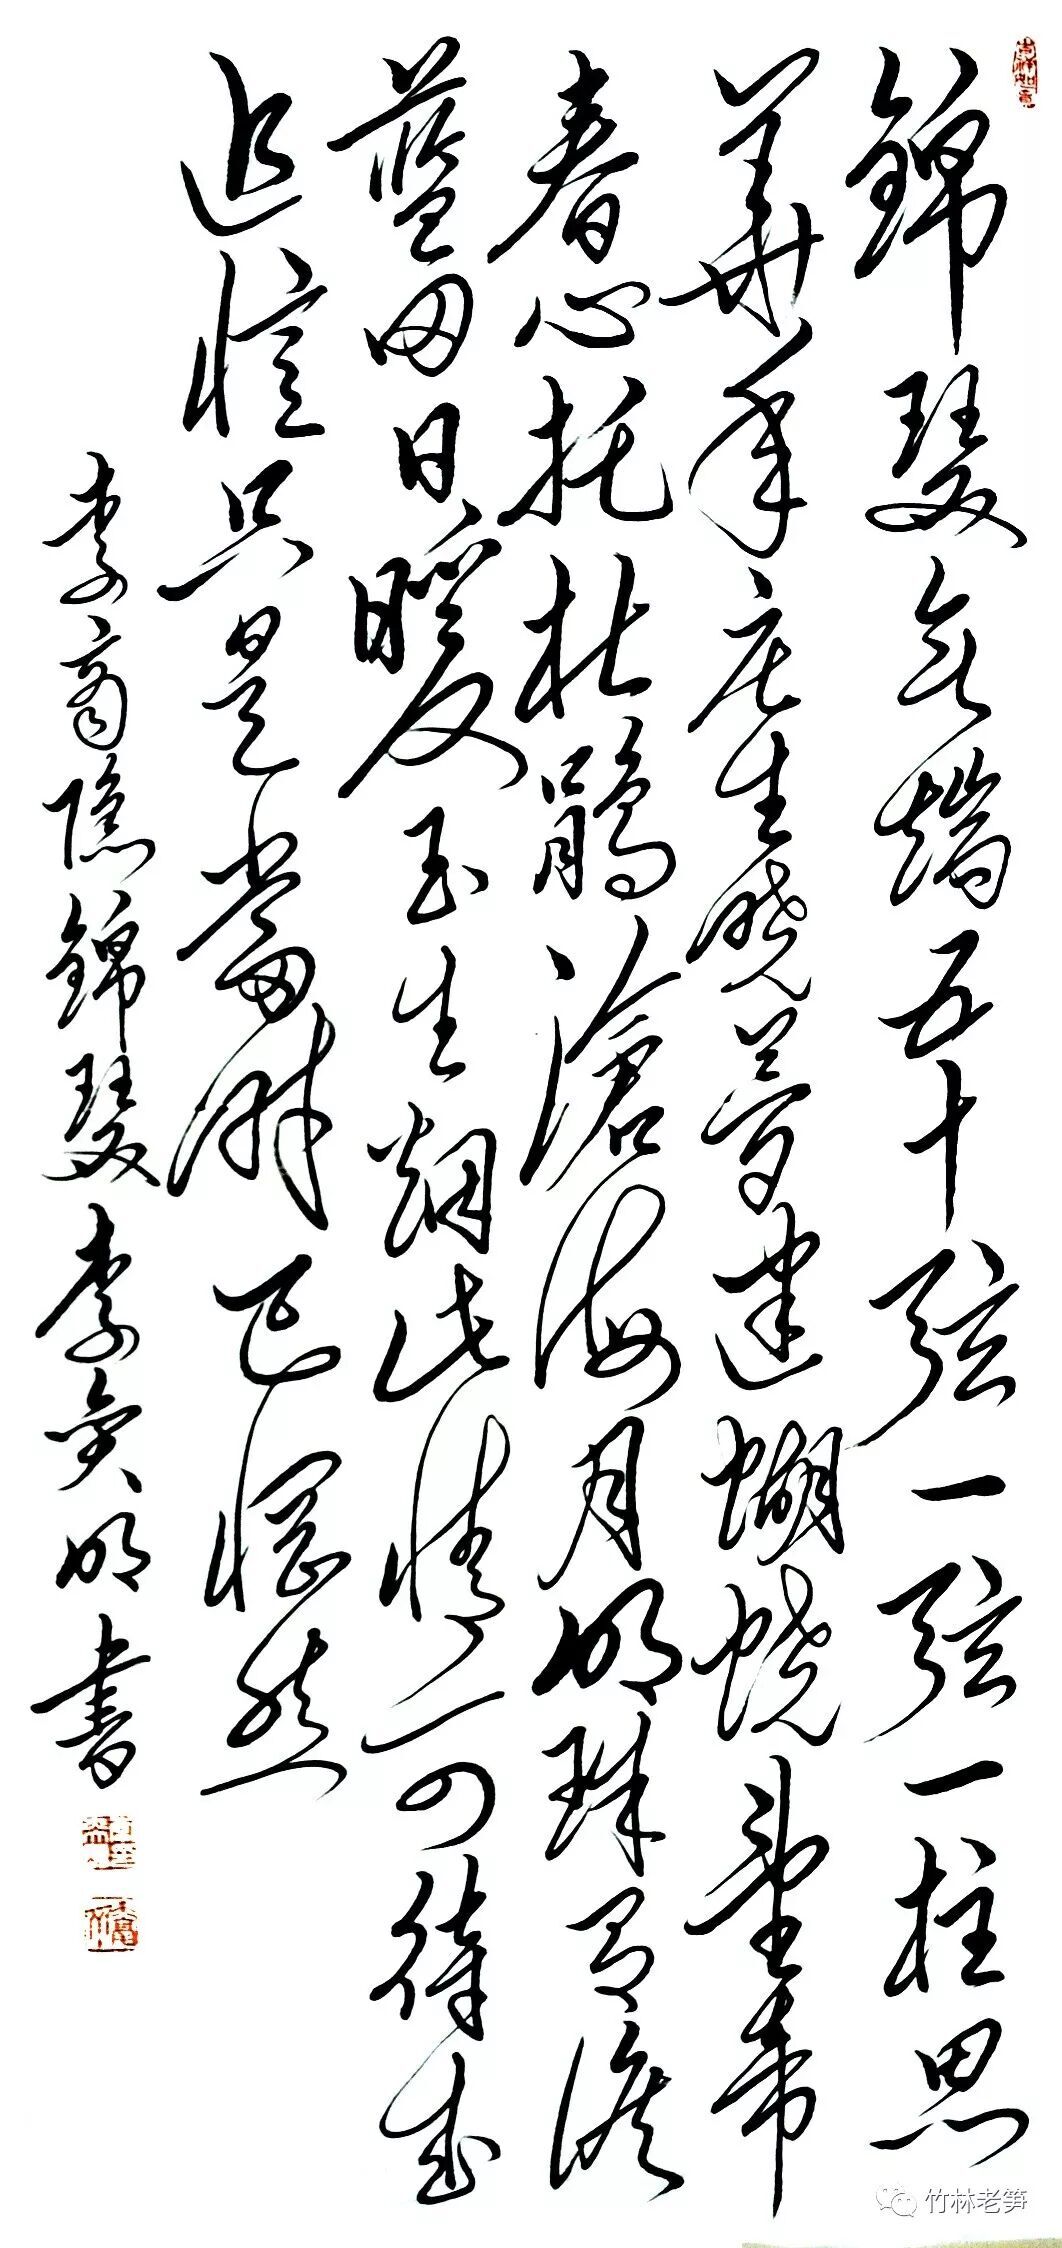 錦瑟无端五十弦一弦一柱思
華年庄生晓夢迷蝴蝶望帝
春心托杜鹃滄海月明珠有淚
藍田日暖玉生烟此情可待成
追憶只是當时已惘然
李商隐錦瑟李明書
竹林老笋